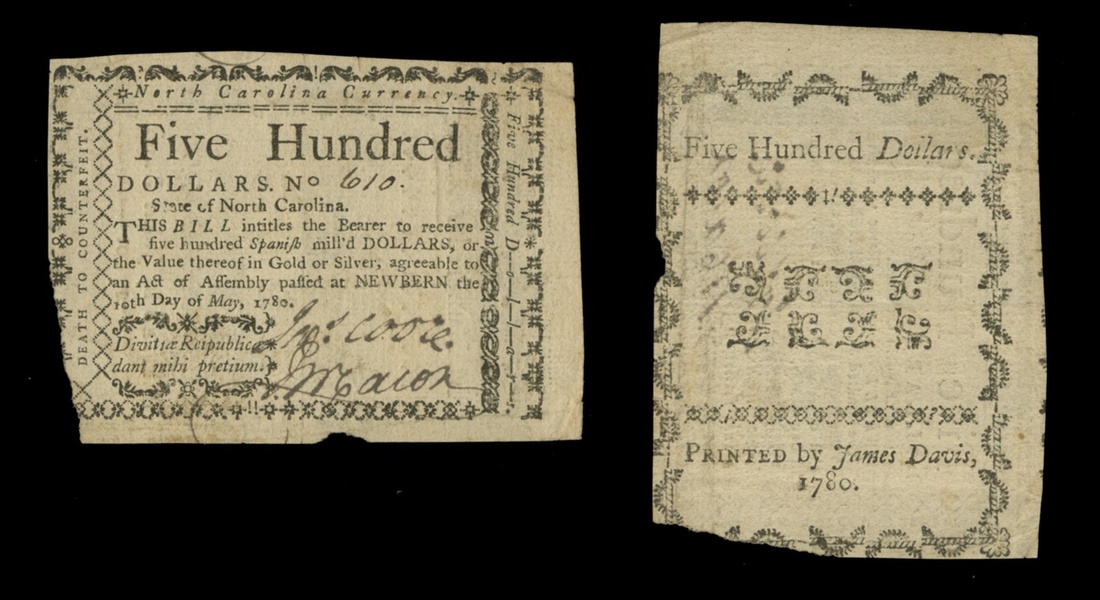 North Carolina Currency.
Five Hundred
DOLLARS. No 610.
State of North Carolina.
THIS BILL intitles the Bearer to receive
five hundred Spaniſh mill'd DOLLARS, or
the Value thereof in Gold or Silver, agreeable to
an Act of Aſſembly paſſed at NEWBERN the
10th Day of May, 1780.
Divitiæ Reipublicæ
dant mihi pretium.
Jno. Cooke.
J. Macon
DEATH TO COUNTERFEIT.
Five Hundred D—o—l—l—a—r—s.
Five Hundred Dollars.
PRINTED by James Davis,
1780.